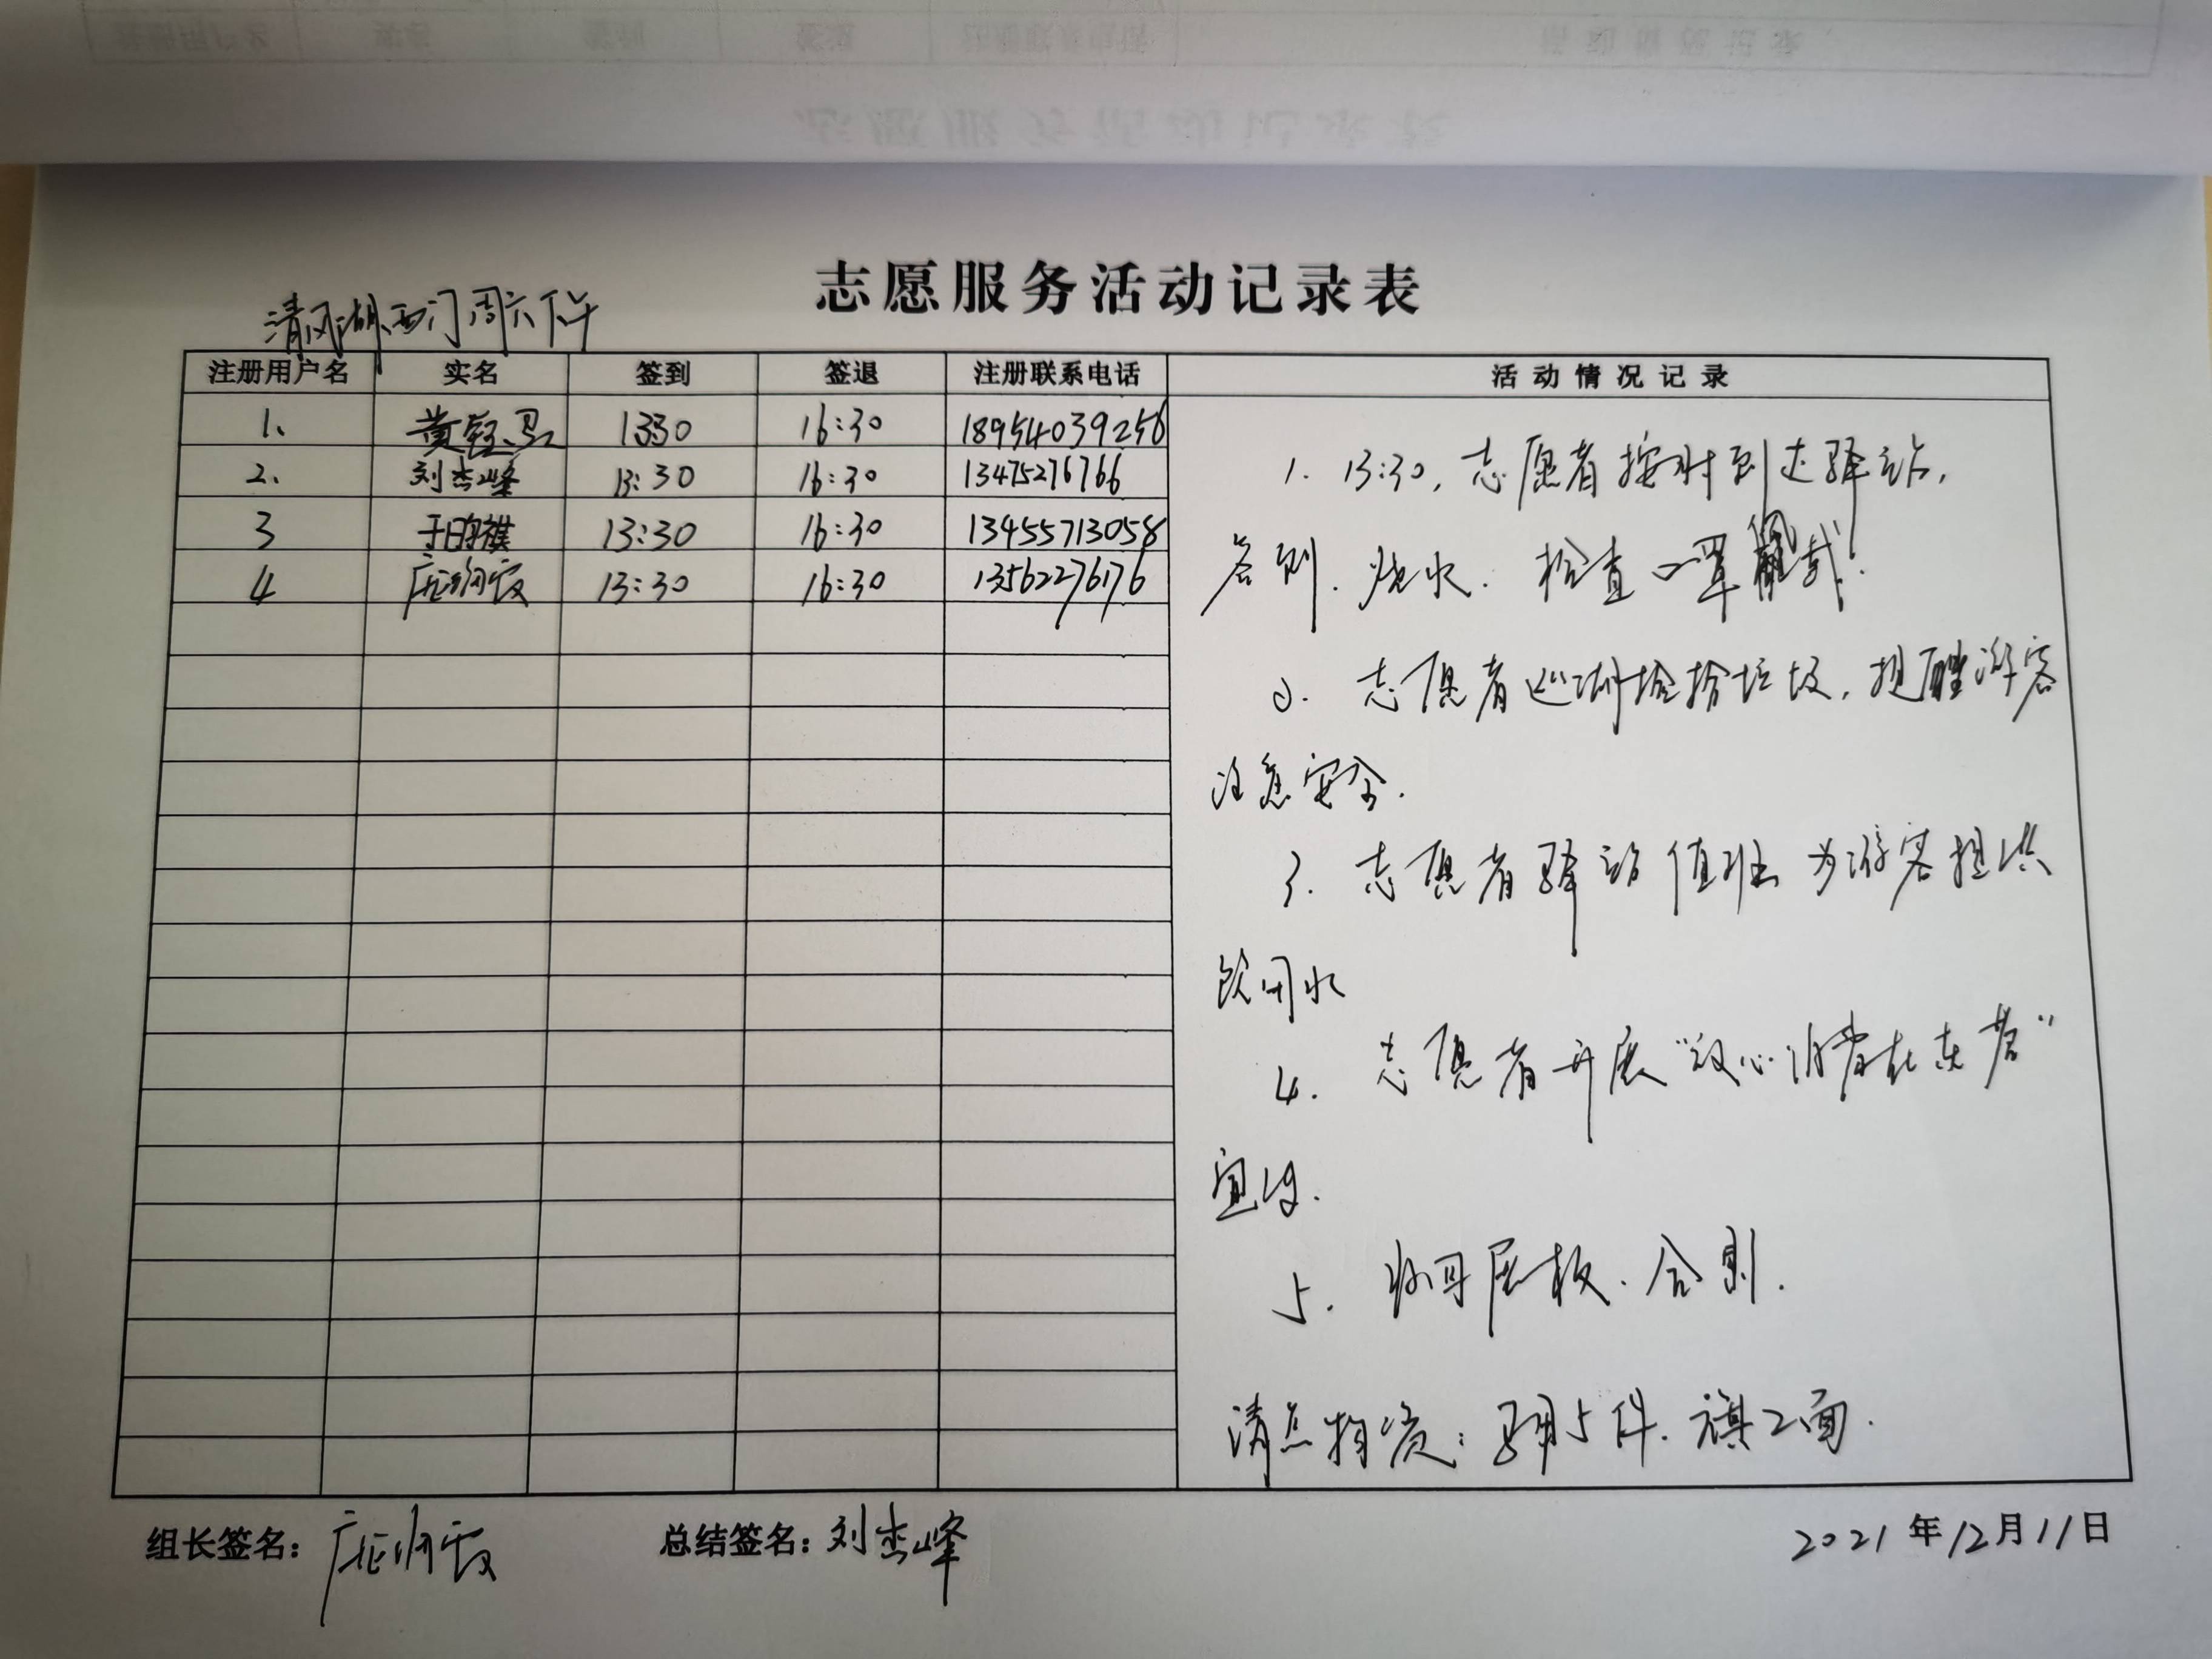 志愿服务活动记录表
清风湖西门周六下午
注册用户名 实名 签到 签退 注册联系电话 活动情况记录
1、 黄 1330 16:30 18954039256
2、 刘杰峰 13:30 16:30 13475276766
3 于昀祺 13:30 16:30 13455713058
4 庞 霞 13:30 16:30 13562276176
1. 13:30,志愿者按时到达驿站,
签到.烧水.检查口罩佩戴!
2. 志愿者巡湖捡拾垃圾,提醒游客
注意安全.
3. 志愿者驿站值班为游客提供
饮用水
4. 志愿者开展“放心消费在东营”
宣传.
5. 收回展板.签到.
清点物资:马甲5件.旗2面.
组长签名: 庞 霞 总结签名:刘杰峰 2021年12月11日